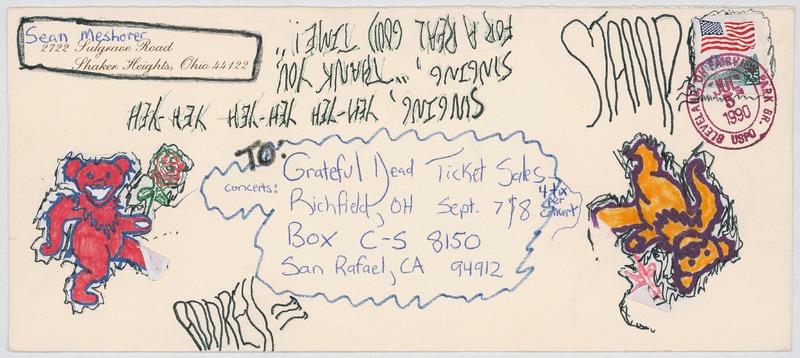 Sean Meshorer
2722 Sulgrave Road
Shaker Heights, Ohio 44122
SINGING, YEH-YEH YEH-YEH YEH-YEH
SINGING, "...THANK YOU,
FOR A REAL GOOD TIME!"
STAMP
25
CLEVELAND OH FAIRVIEW PARK BR.
JUL
5
1990
USPO
TO:
Grateful Dead Ticket Sales
concerts: Richfield, OH Sept. 7 & 8
4 tix
per
concert
Box C-S 8150
San Rafael, CA 94912
ADDRESS